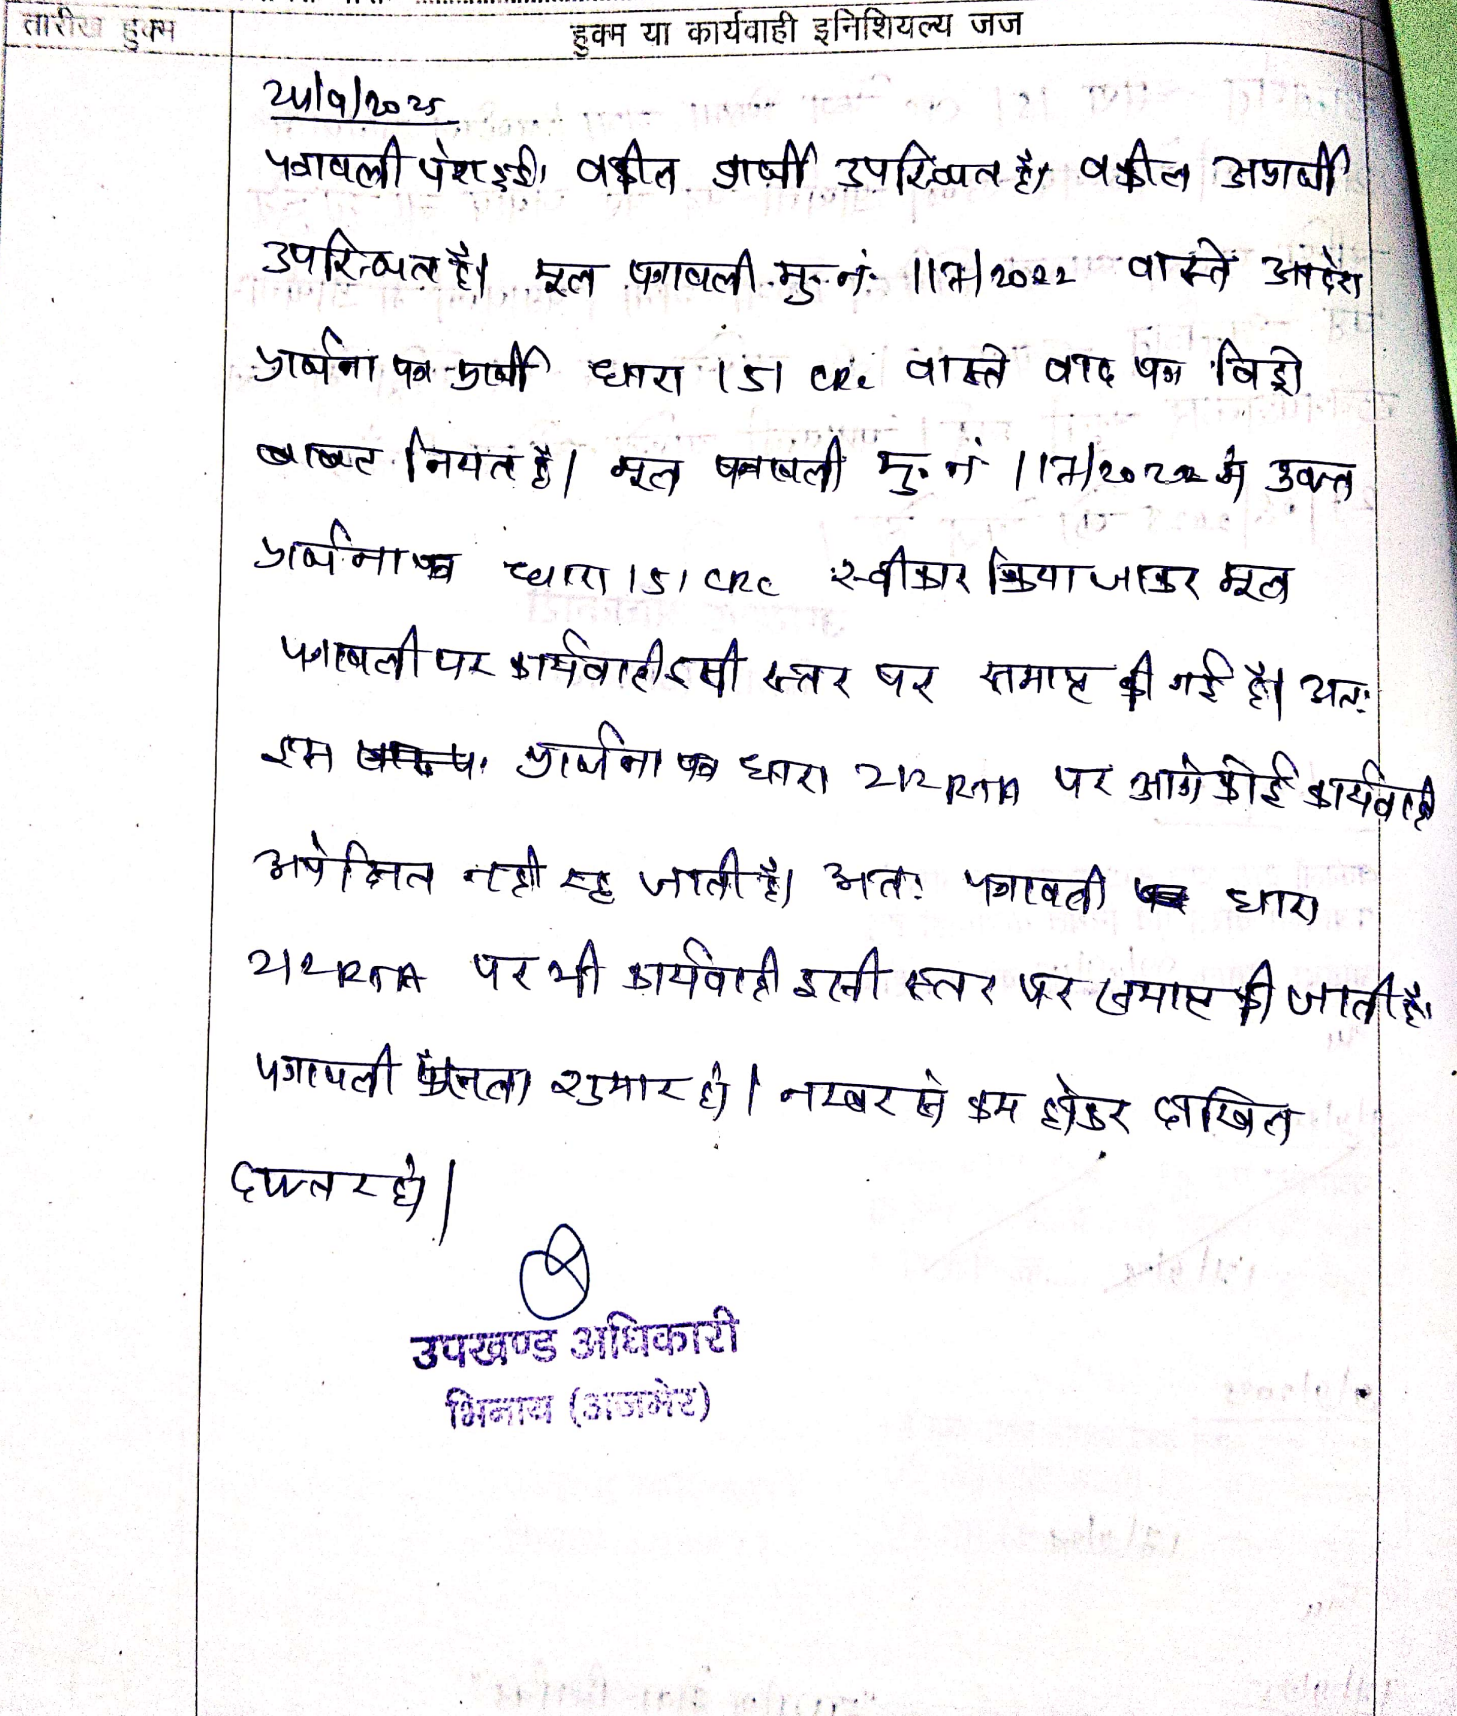 तारीख हुक्म
हुक्म या कार्यवाही इनिशियल्य जज
पत्रावली पेश हुई। वकील प्रार्थी उपस्थित है। वकील अप्रार्थी
उपस्थित है। मूल पत्रावली मु. नं. 117/2022 वास्ते आदेश
प्रार्थना पत्र प्रार्थी धारा 151 CPC वास्ते वाद पत्र विड्रो
बाबत नियत है। मूल पत्रावली मु. नं 117/2022 में उक्त
प्रार्थना पत्र धारा 151 CPC स्वीकार किया जाकर मूल
पत्रावली पर कार्यवाही इसी स्तर पर समाप्त की गई है। अतः
इस प्रार्थना पत्र धारा 212 RTA पर आगे कोई कार्यवाही
अपेक्षित नहीं रह जाती है। अतः पत्रावली धारा
212 RTA पर भी कार्यवाही इसी स्तर पर समाप्त की जाती है।
पत्रावली फैसला शुमार हो। नम्बर से कम होकर दाखिल
दफ्तर हो।
उपखण्ड अधिकारी
भिनाय (अजमेर)